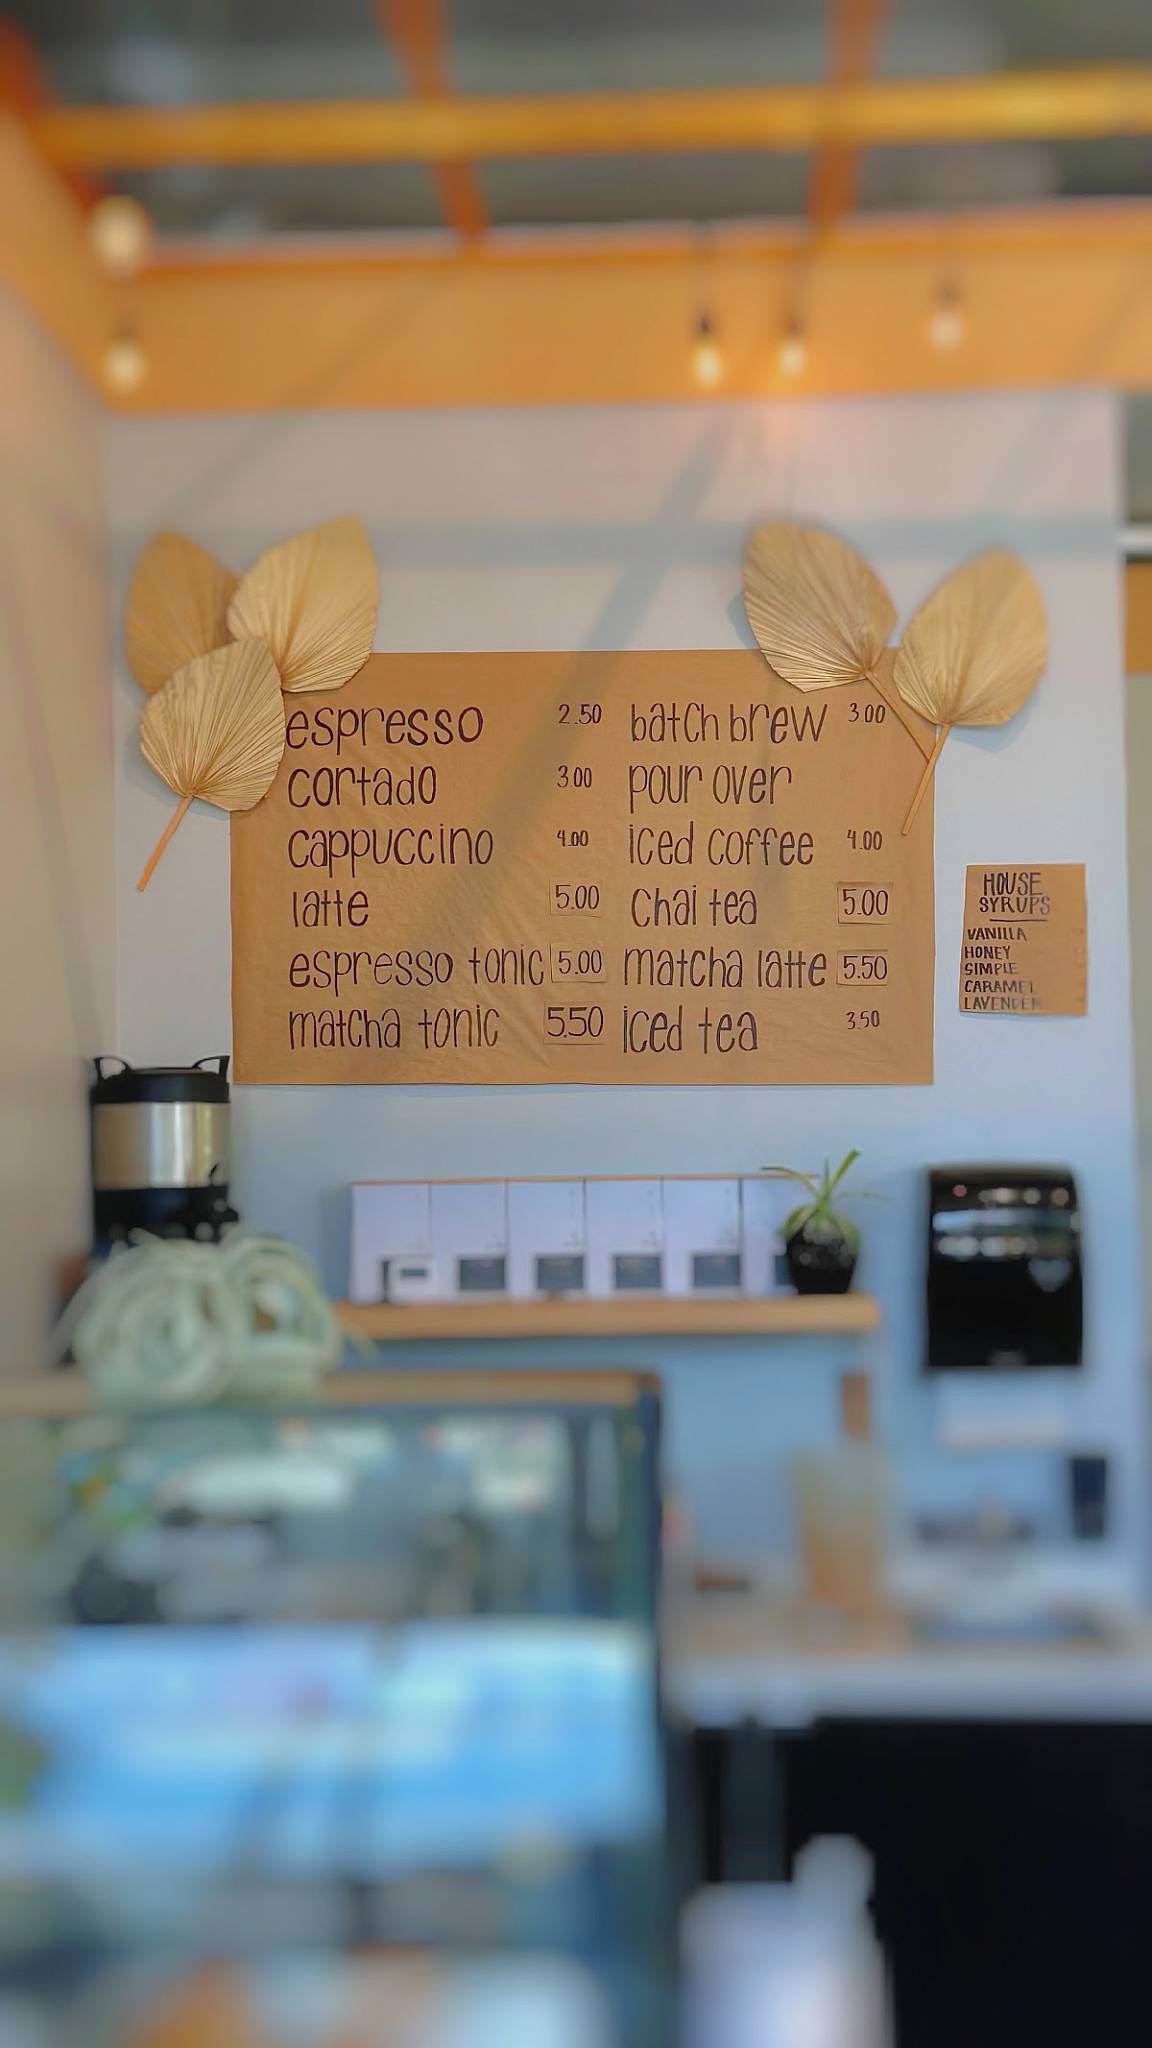 espresso 2.50
cortado 3.00
cappuccino 4.00
latte 5.00
espresso tonic 5.00
matcha tonic 5.50
batch brew 3.00
pour over
iced coffee 4.00
chai tea 5.00
matcha latte 5.50
iced tea 3.50
HOUSE
SYRUPS
VANILLA
HONEY
SIMPLE
CARAMEL
LAVENDER